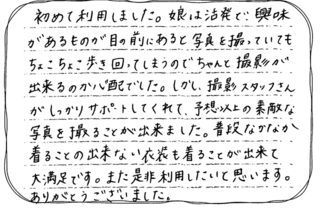 初めて利用しました。娘は活発で、興味
があるものが目の前にあると写真を撮っていても
ちょこちょこ歩き回ってしまうのでちゃんと撮影が
出来るのか心配でした。しかし、撮影スタッフさん
がしっかりサポートしてくれて、予想以上の素敵な
写真を撮ることが出来ました。普段なかなか
着ることの出来ない衣装も着ることが出来て
大満足です。また是非利用したいと思います。
ありがとうございました。